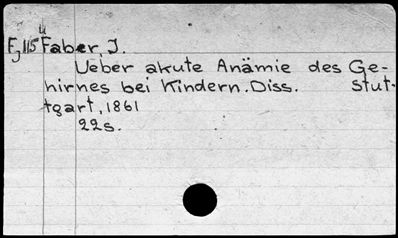 Fj 115 u Faber, J.
Ueber akute Anämie des Ge-
hirnes bei Kindern. Diss. Stut-
tgart, 1861
22s.